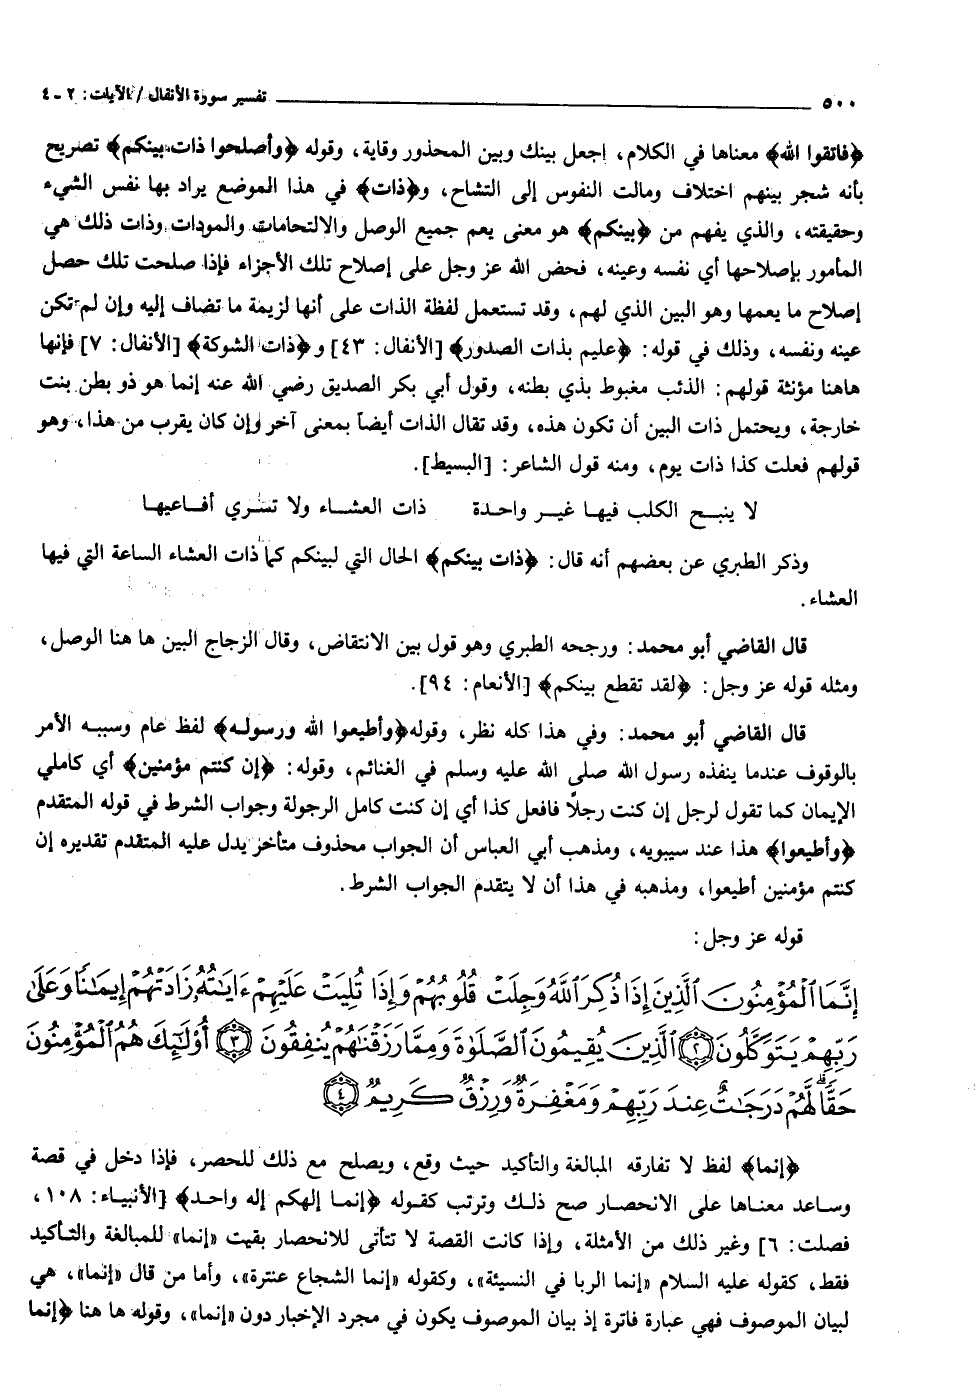 ٥٠٠ تفسير سورة الأنفال / الآيات: ٢ - ٤
﴿فاتقوا الله﴾ معناها في الكلام، اجعل بينك وبين المحذور وقاية، وقوله ﴿وأصلحوا ذات بينكم﴾ تصريح
بأنه شجر بينهم اختلاف ومالت النفوس إلى التشاح، و﴿ذات﴾ في هذا الموضع يراد بها نفس الشيء
وحقيقته، والذي يفهم من ﴿بينكم﴾ هو معنى يعم جميع الوصل والالتحامات والمودات وذات ذلك هي
المأمور بإصلاحها أي نفسه وعينه، فحض الله عز وجل على إصلاح تلك الأجزاء فإذا صلحت تلك حصل
إصلاح ما يعمها وهو البين الذي لهم، وقد تستعمل لفظة الذات على أنها لزيمة ما تضاف إليه وإن لم تكن
عينه ونفسه، وذلك في قوله: ﴿عليم بذات الصدور﴾ [الأنفال: ٤٣] و﴿ذات الشوكة﴾ [الأنفال: ٧] فإنها
هاهنا مؤنثة قولهم: الذئب مغبوط بذي بطنه، وقول أبي بكر الصديق رضي الله عنه إنما هو ذو بطن بنت
خارجة، ويحتمل ذات البين أن تكون هذه، وقد تقال الذات أيضاً بمعنى آخر وإن كان يقرب من هذا، وهو
قولهم فعلت كذا ذات يوم، ومنه قول الشاعر: [البسيط].
لا ينبـح الكلب فيها غيـر واحـدة ذات العشـاء ولا تسري أفـاعيهـا
وذكر الطبري عن بعضهم أنه قال: ﴿ذات بينكم﴾ الحال التي لبينكم كما ذات العشاء الساعة التي فيها
العشاء.
قال القاضي أبو محمد: ورجحه الطبري وهو قول بين الانتقاض، وقال الزجاج البين ها هنا الوصل،
ومثله قوله عز وجل: ﴿لقد تقطع بينكم﴾ [الأنعام: ٩٤].
قال القاضي أبو محمد: وفي هذا كله نظر، وقوله﴿وأطيعوا الله ورسولـه﴾ لفظ عام وسببـه الأمر
بالوقوف عندما ينفذه رسول الله صلى الله عليه وسلم في الغنائم، وقوله: ﴿إن كنتم مؤمنين﴾ أي كاملي
الإيمان كما تقول لرجل إن كنت رجلاً فافعل كذا أي إن كنت كامل الرجولة وجواب الشرط في قوله المتقدم
﴿وأطيعوا﴾ هذا عند سيبويه، ومذهب أبي العباس أن الجواب محذوف متأخر يدل عليه المتقدم تقديره إن
كنتم مؤمنين أطيعوا، ومذهبه في هذا أن لا يتقدم الجواب الشرط.
قوله عز وجل:
إِنَّمَا ٱلْمُؤْمِنُونَ ٱلَّذِينَ إِذَا ذُكِرَ ٱللَّهُ وَجِلَتْ قُلُوبُهُمْ وَإِذَا تُلِيَتْ عَلَيْهِمْ ءَايَٰتُهُۥ زَادَتْهُمْ إِيمَٰنًا وَعَلَىٰ
رَبِّهِمْ يَتَوَكَّلُونَ ﴿٢﴾ ٱلَّذِينَ يُقِيمُونَ ٱلصَّلَوٰةَ وَمِمَّا رَزَقْنَٰهُمْ يُنفِقُونَ ﴿٣﴾ أُوْلَٰٓئِكَ هُمُ ٱلْمُؤْمِنُونَ
حَقًّاۚ لَّهُمْ دَرَجَٰتٌ عِندَ رَبِّهِمْ وَمَغْفِرَةٌ وَرِزْقٌ كَرِيمٌ ﴿٤﴾
﴿إنما﴾ لفظ لا تفارقه المبالغة والتأكيد حيث وقع، ويصلح مع ذلك للحصر، فإذا دخل في قصة
وساعد معناها على الانحصار صح ذلـك وترتب كقـوله ﴿إنمـا إلهكم إله واحـد﴾ [الأنبياء: ١٠٨،
فصلت: ٦] وغير ذلك من الأمثلة، وإذا كانت القصة لا تتأتى للانحصار بقيت «إنما» للمبالغة والتـأكيد
فقط، كقوله عليه السلام «إنما الربا في النسيئة»، وكقوله «إنما الشجاع عنترة»، وأما من قال «إنما»، هي
لبيان الموصوف فهي عبارة فاترة إذ بيان الموصوف يكون في مجرد الإخبار دون «إنما»، وقوله ها هنا ﴿إنما